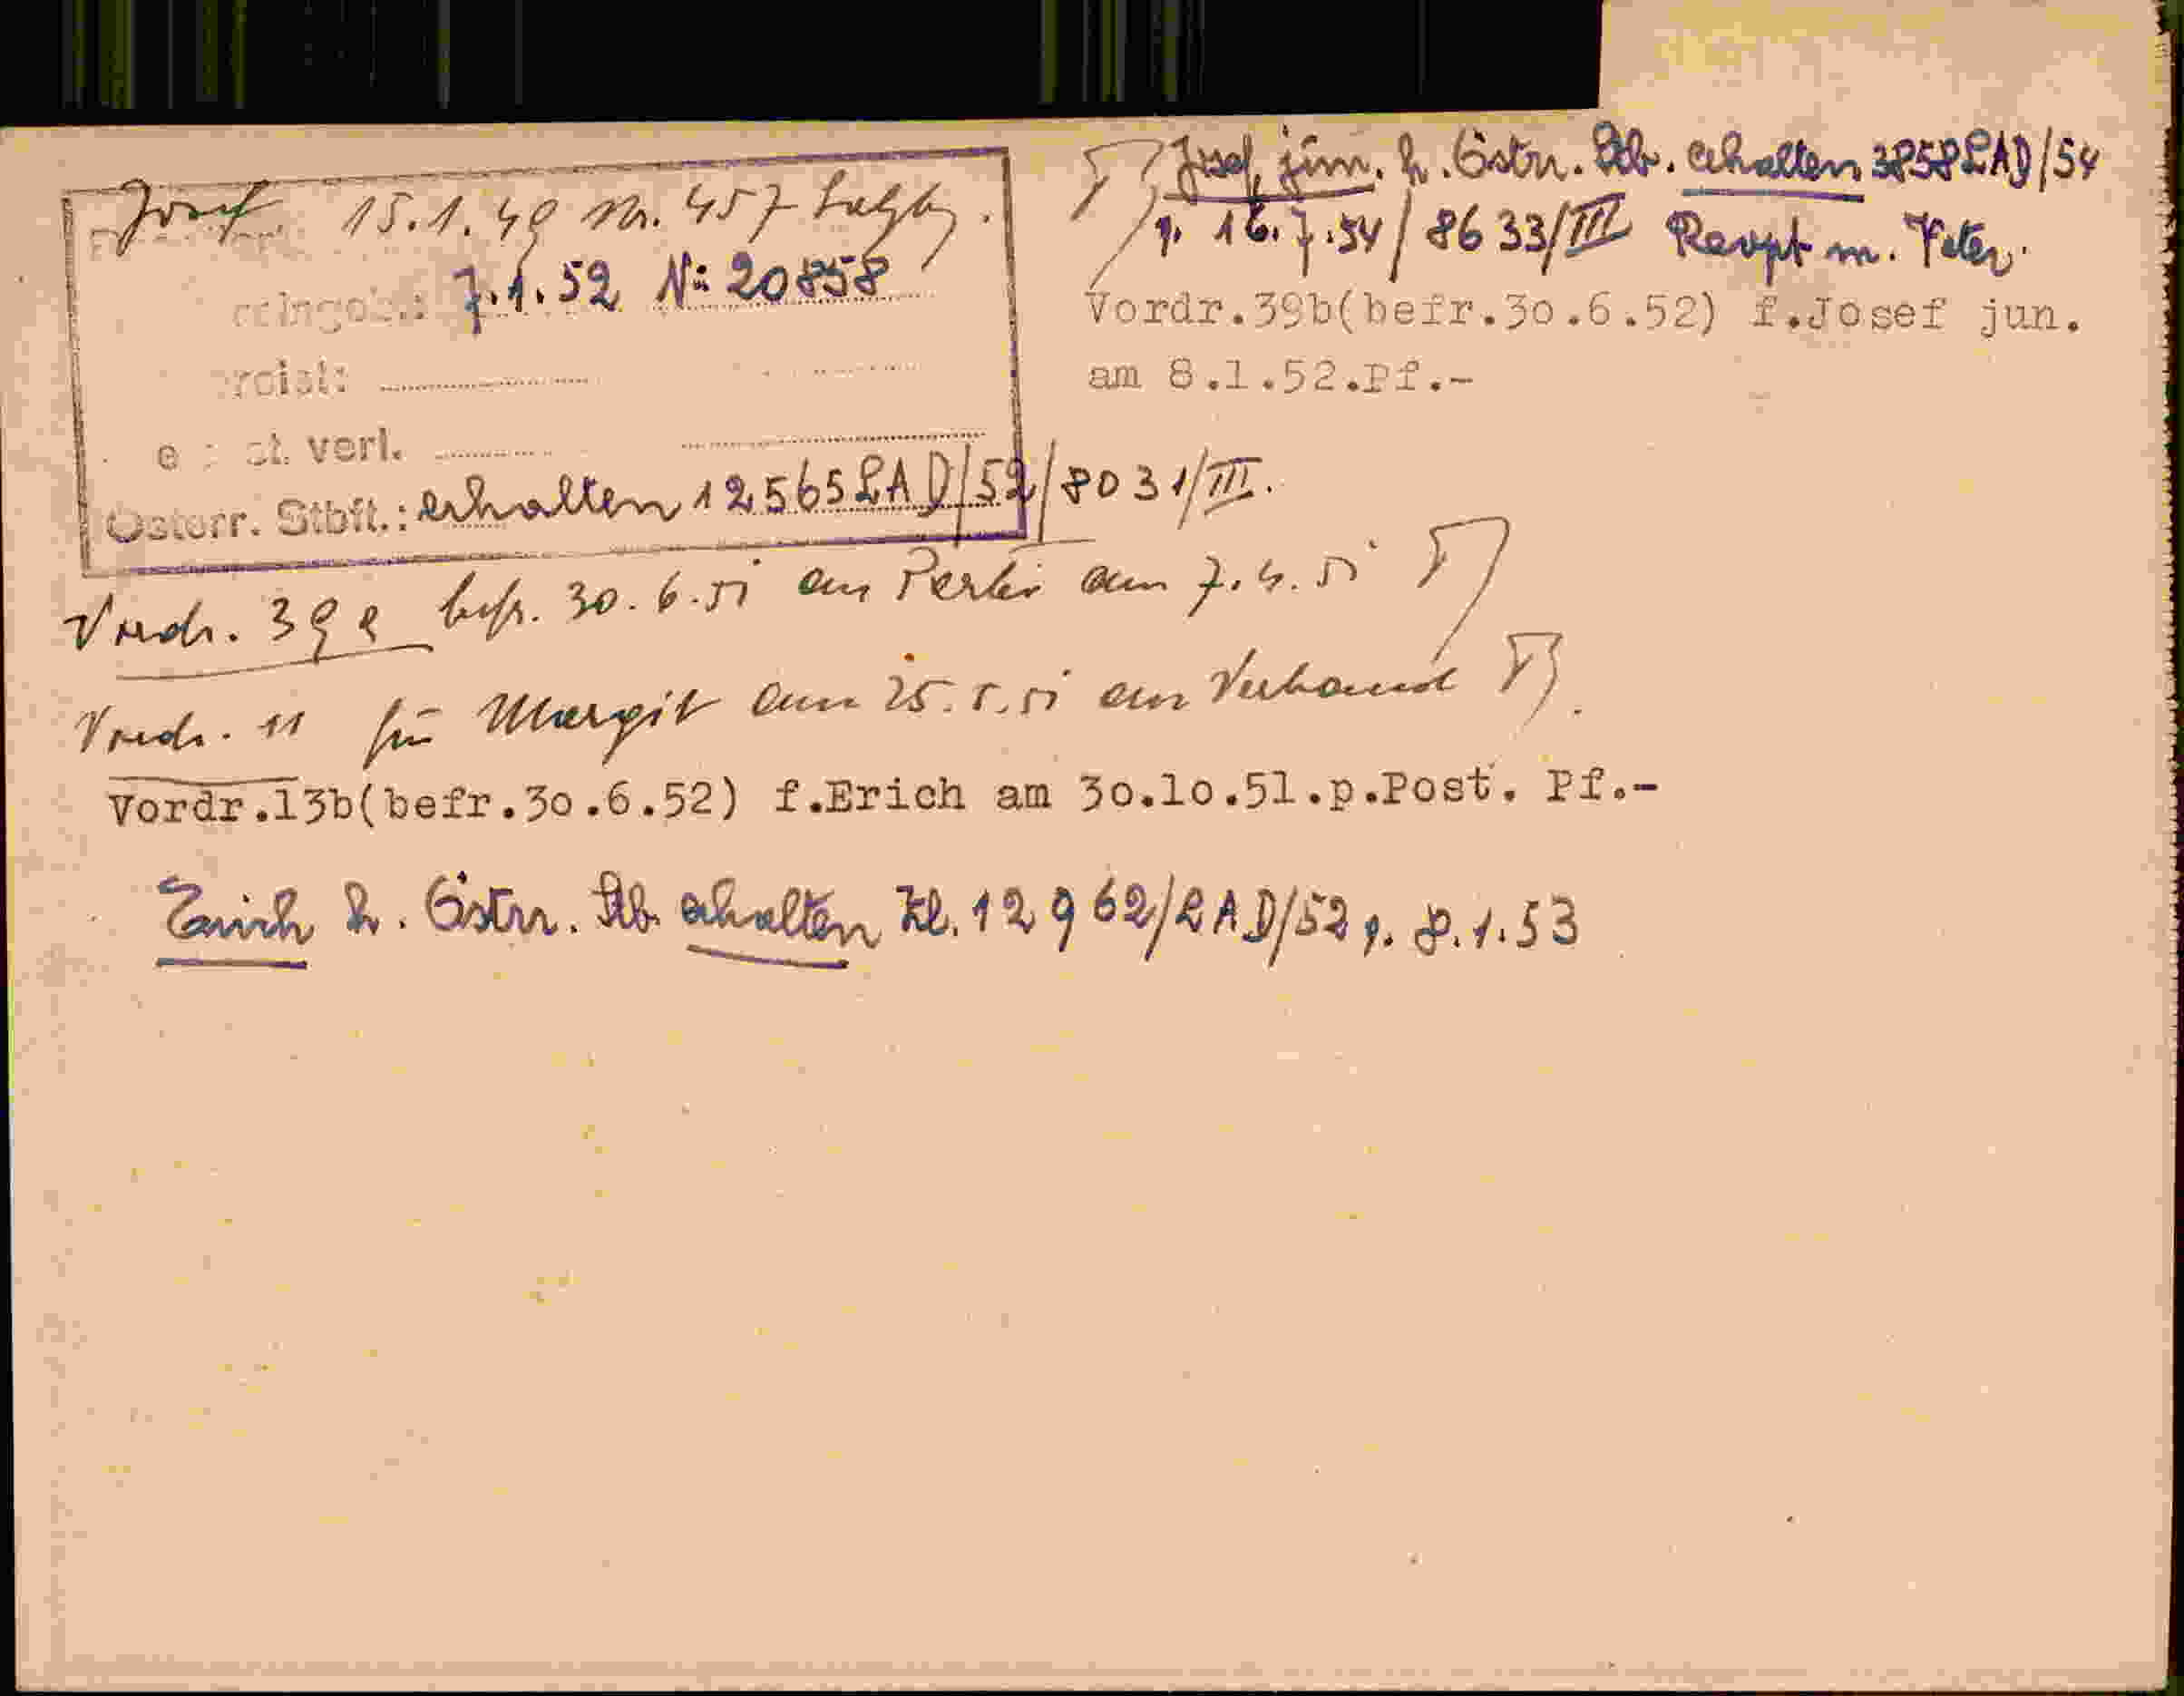 Josef 15.1.49 Nr. 457 Salzbg.
7.1.52 N: 20858
verl.
Österr. Stbft.: erhalten 12565LAD/52/8031/III.
Josef jun. h. Östrr. Stb. erhalten 3858LAD/54
p. 16.7.54/8633/III m. Vater.
Vordr.39b(befr.30.6.52) f.Josef jun.
am 8.1.52.Pf.-
Vordr. 39a befr. 30.6.51 an Partei am 7.4.51
Vordr. 11 für Margit am 25.5.51 an Verband
Vordr.13b(befr.30.6.52) f.Erich am 30.10.51.p.Post. Pf.-
Erich h. Östrr. Stb. erhalten Zl. 12962/LAD/52 p. 8.1.53